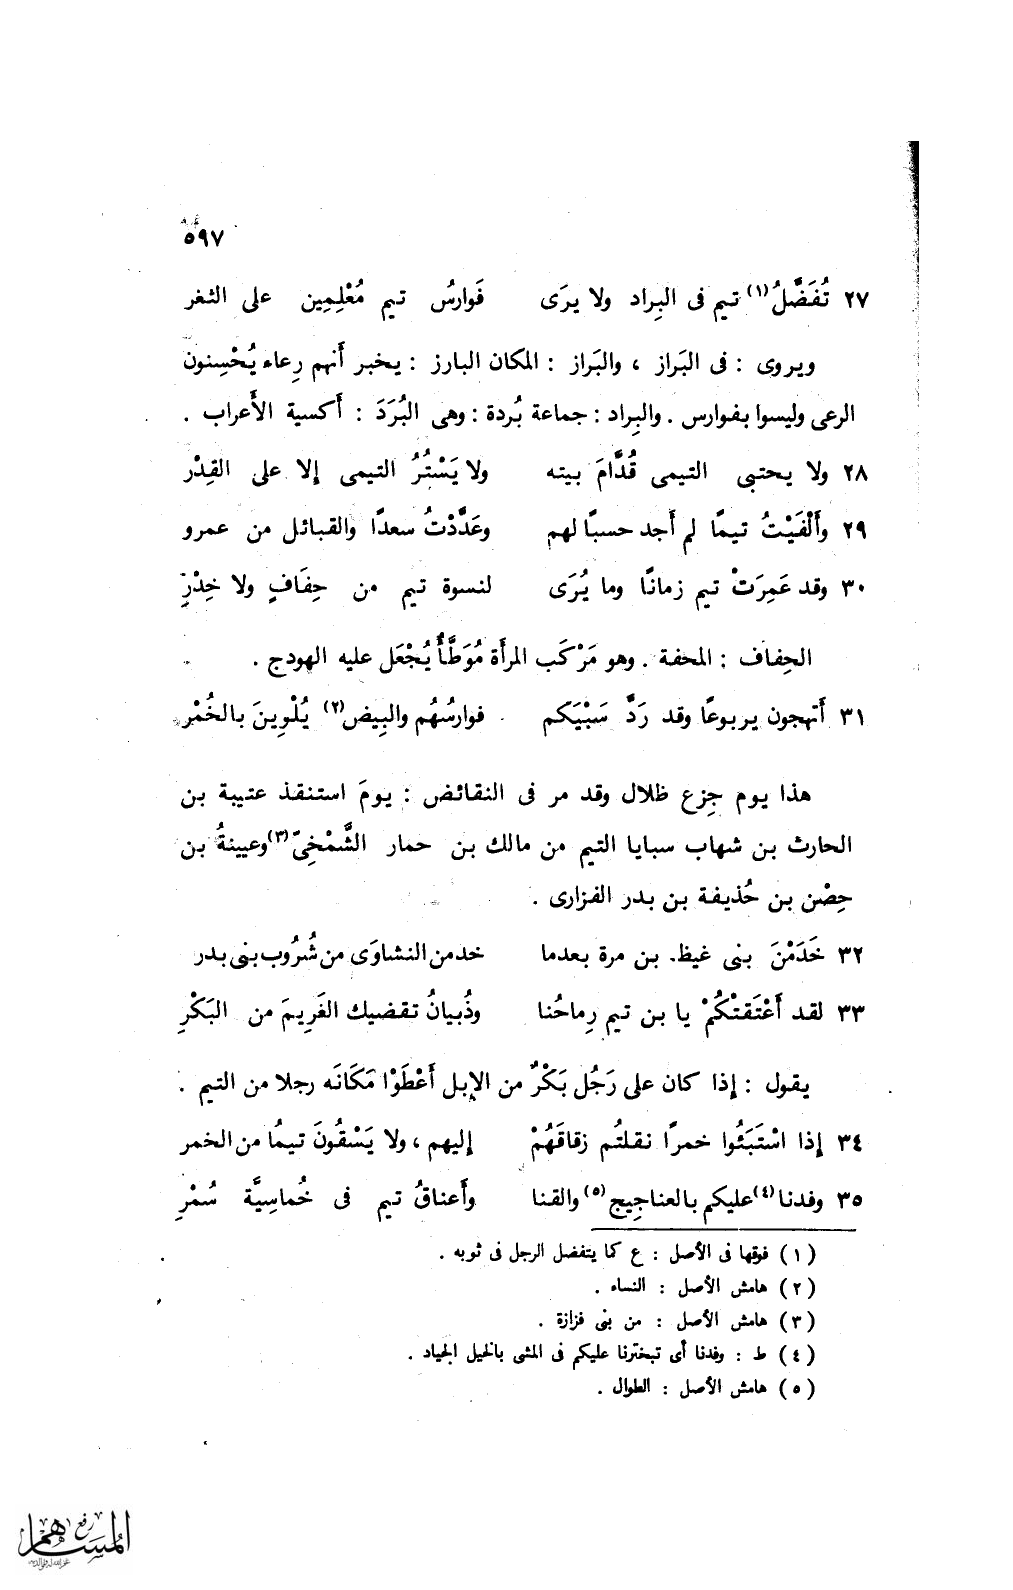 ٥٩٧
٢٧ تُفَضَّلُ(١) تيم فى البِراد ولا يرَى فَوارسُ تيم مُعْلِمِين على الثغر
ويروى : فى البَراز ، والبَراز : المكان البارز : يخبر أَنهم رِعاء يُحْسِنون
الرعى وليسوا بفوارس . والبِراد : جماعة بُردة : وهى البُرَدَ : أَكسية الأَعراب .
٢٨ ولا يحتبى التيمى قُدَّامَ بيته ولا يَسْتُرُ التيمى إلا على القِدْر
٢٩ وأَلْفَيْتُ تيمًا لم أَجد حسبًا لهم وعَدَّدْتُ سعدًا والقبائل من عمرو
٣٠ وقد عَمِرَتْ تيم زمانًا وما يُرَى لنسوة تيم من حِفَافٍ ولا خِدْرِ
الحِفاف : المحفة . وهو مَرْكَب المرأَة مُوَطَّأٌ يُجْعَل عليه الهودج .
٣١ أَتهجون يربوعًا وقد رَدَّ سَبْيَكم فوارسُهُم والبِيض(٢) يُلْوِينَ بالخُمْرِ
هذا يوم جِزع ظلال وقد مر فى النقائض : يومَ استنقذ عتيبة بن
الحارث بن شهاب سبايا التيم من مالك بن حمار الشَّمْخِىّ(٣) وعيينةُ بن
حِصْن بن حُذيفة بن بدر الفزارى .
٣٢ خَدَمْنَ بنى غيظ بن مرة بعدما خدمن النشاوَى من شُرُوب بنى بدر
٣٣ لقد أَعْتَقتْكُمْ يا بن تيم رِماحُنا وذُبيانُ تقضيك الغَرِيمَ من البَكْرِ
يقول : إذا كان على رَجُل بَكْرٌ من الإبل أَعْطَوْا مَكَانَه رجلا من التيم .
٣٤ إذا اسْتَبَئُوا خمرًا نقلتُم زقاقَهُمْ إليهم ، ولا يَسْقُونَ تيمُا من الخمر
٣٥ وفدنا(٤) عليكم بالعناجِيج(٥) والقنا وأَعناقُ تيم فى خُماسِيَّة سُمْرِ
(١) فوقها فى الأصل : ع كما يتفضل الرجل فى ثوبه .
(٢) هامش الأصل : النساء .
(٣) هامش الأصل : من بنى فزازة .
(٤) ط : وفدنا أى تبخترنا عليكم فى المشى بالخيل الجياد .
(٥) هامش الأصل : الطوال .